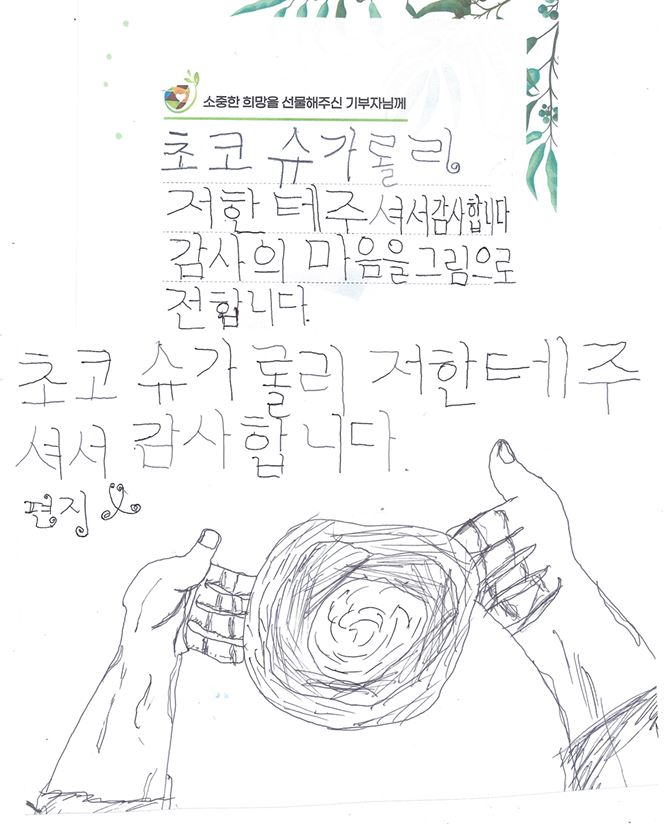 소중한 희망을 선물해주신 기부자님께
초코 슈가롤리
저한테주셔서감사합니다
감사의 마음을그림으로
전합니다.
초코 슈가 롤리 저한테주
셔서 감사합니다.
편지